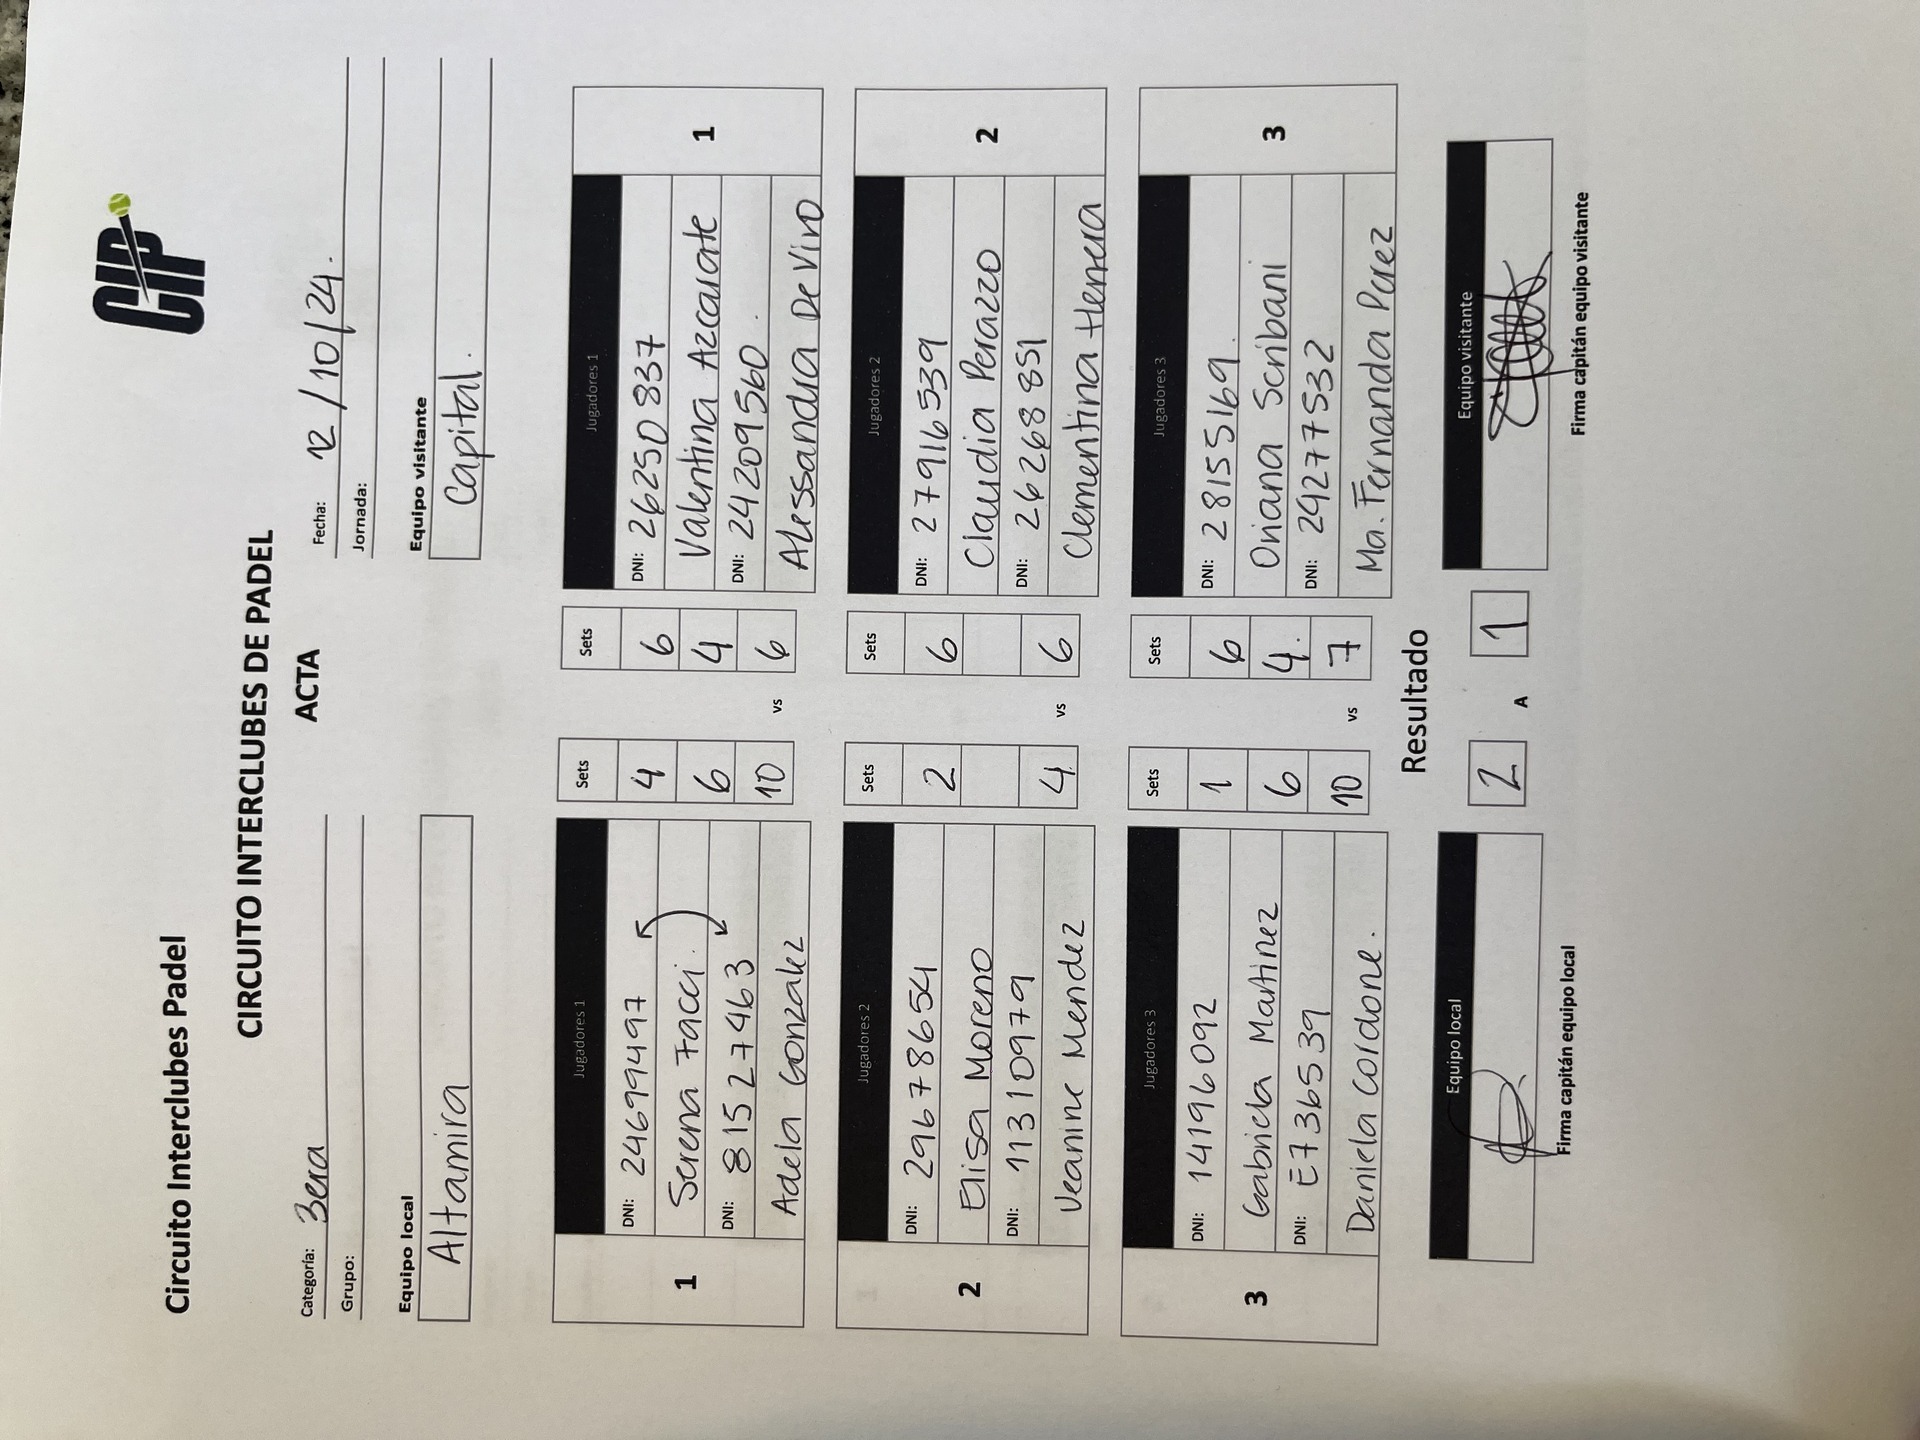 CIP
Circuito Interclubes Padel
CIRCUITO INTERCLUBES DE PADEL
ACTA
Categoría: 3era
Fecha: 12/10/24.
Grupo:
Jornada:
Equipo local
Equipo visitante
Altamira
Capital.
Jugadores 1 Sets Sets Jugadores 1
DNI: 24699497 4 6 DNI: 26250837
1 Serena Facci. 6 4 Valentina Azcarate 1
DNI: 81527463 10 vs 6 DNI: 24209560.
Adela Gonzalez Alessandra De Vivo
Jugadores 2 Sets Sets Jugadores 2
DNI: 29678654 2 6 DNI: 27916539
2 Elisa Moreno Claudia Perazzo 2
DNI: 11310979 4 vs 6 DNI: 26268851
Jeanine Mendez Clementina Herrera
Jugadores 3 Sets Sets Jugadores 3
DNI: 14196092 1 6 DNI: 28155169.
3 Gabriela Martinez 6 4. Oriana Scribani 3
DNI: E7365539 10 vs 7 DNI: 29277532
Daniela Cordone. Ma. Fernanda Perez
Resultado
Equipo local 2 A 1 Equipo visitante
Firma capitán equipo local
Firma capitán equipo visitante